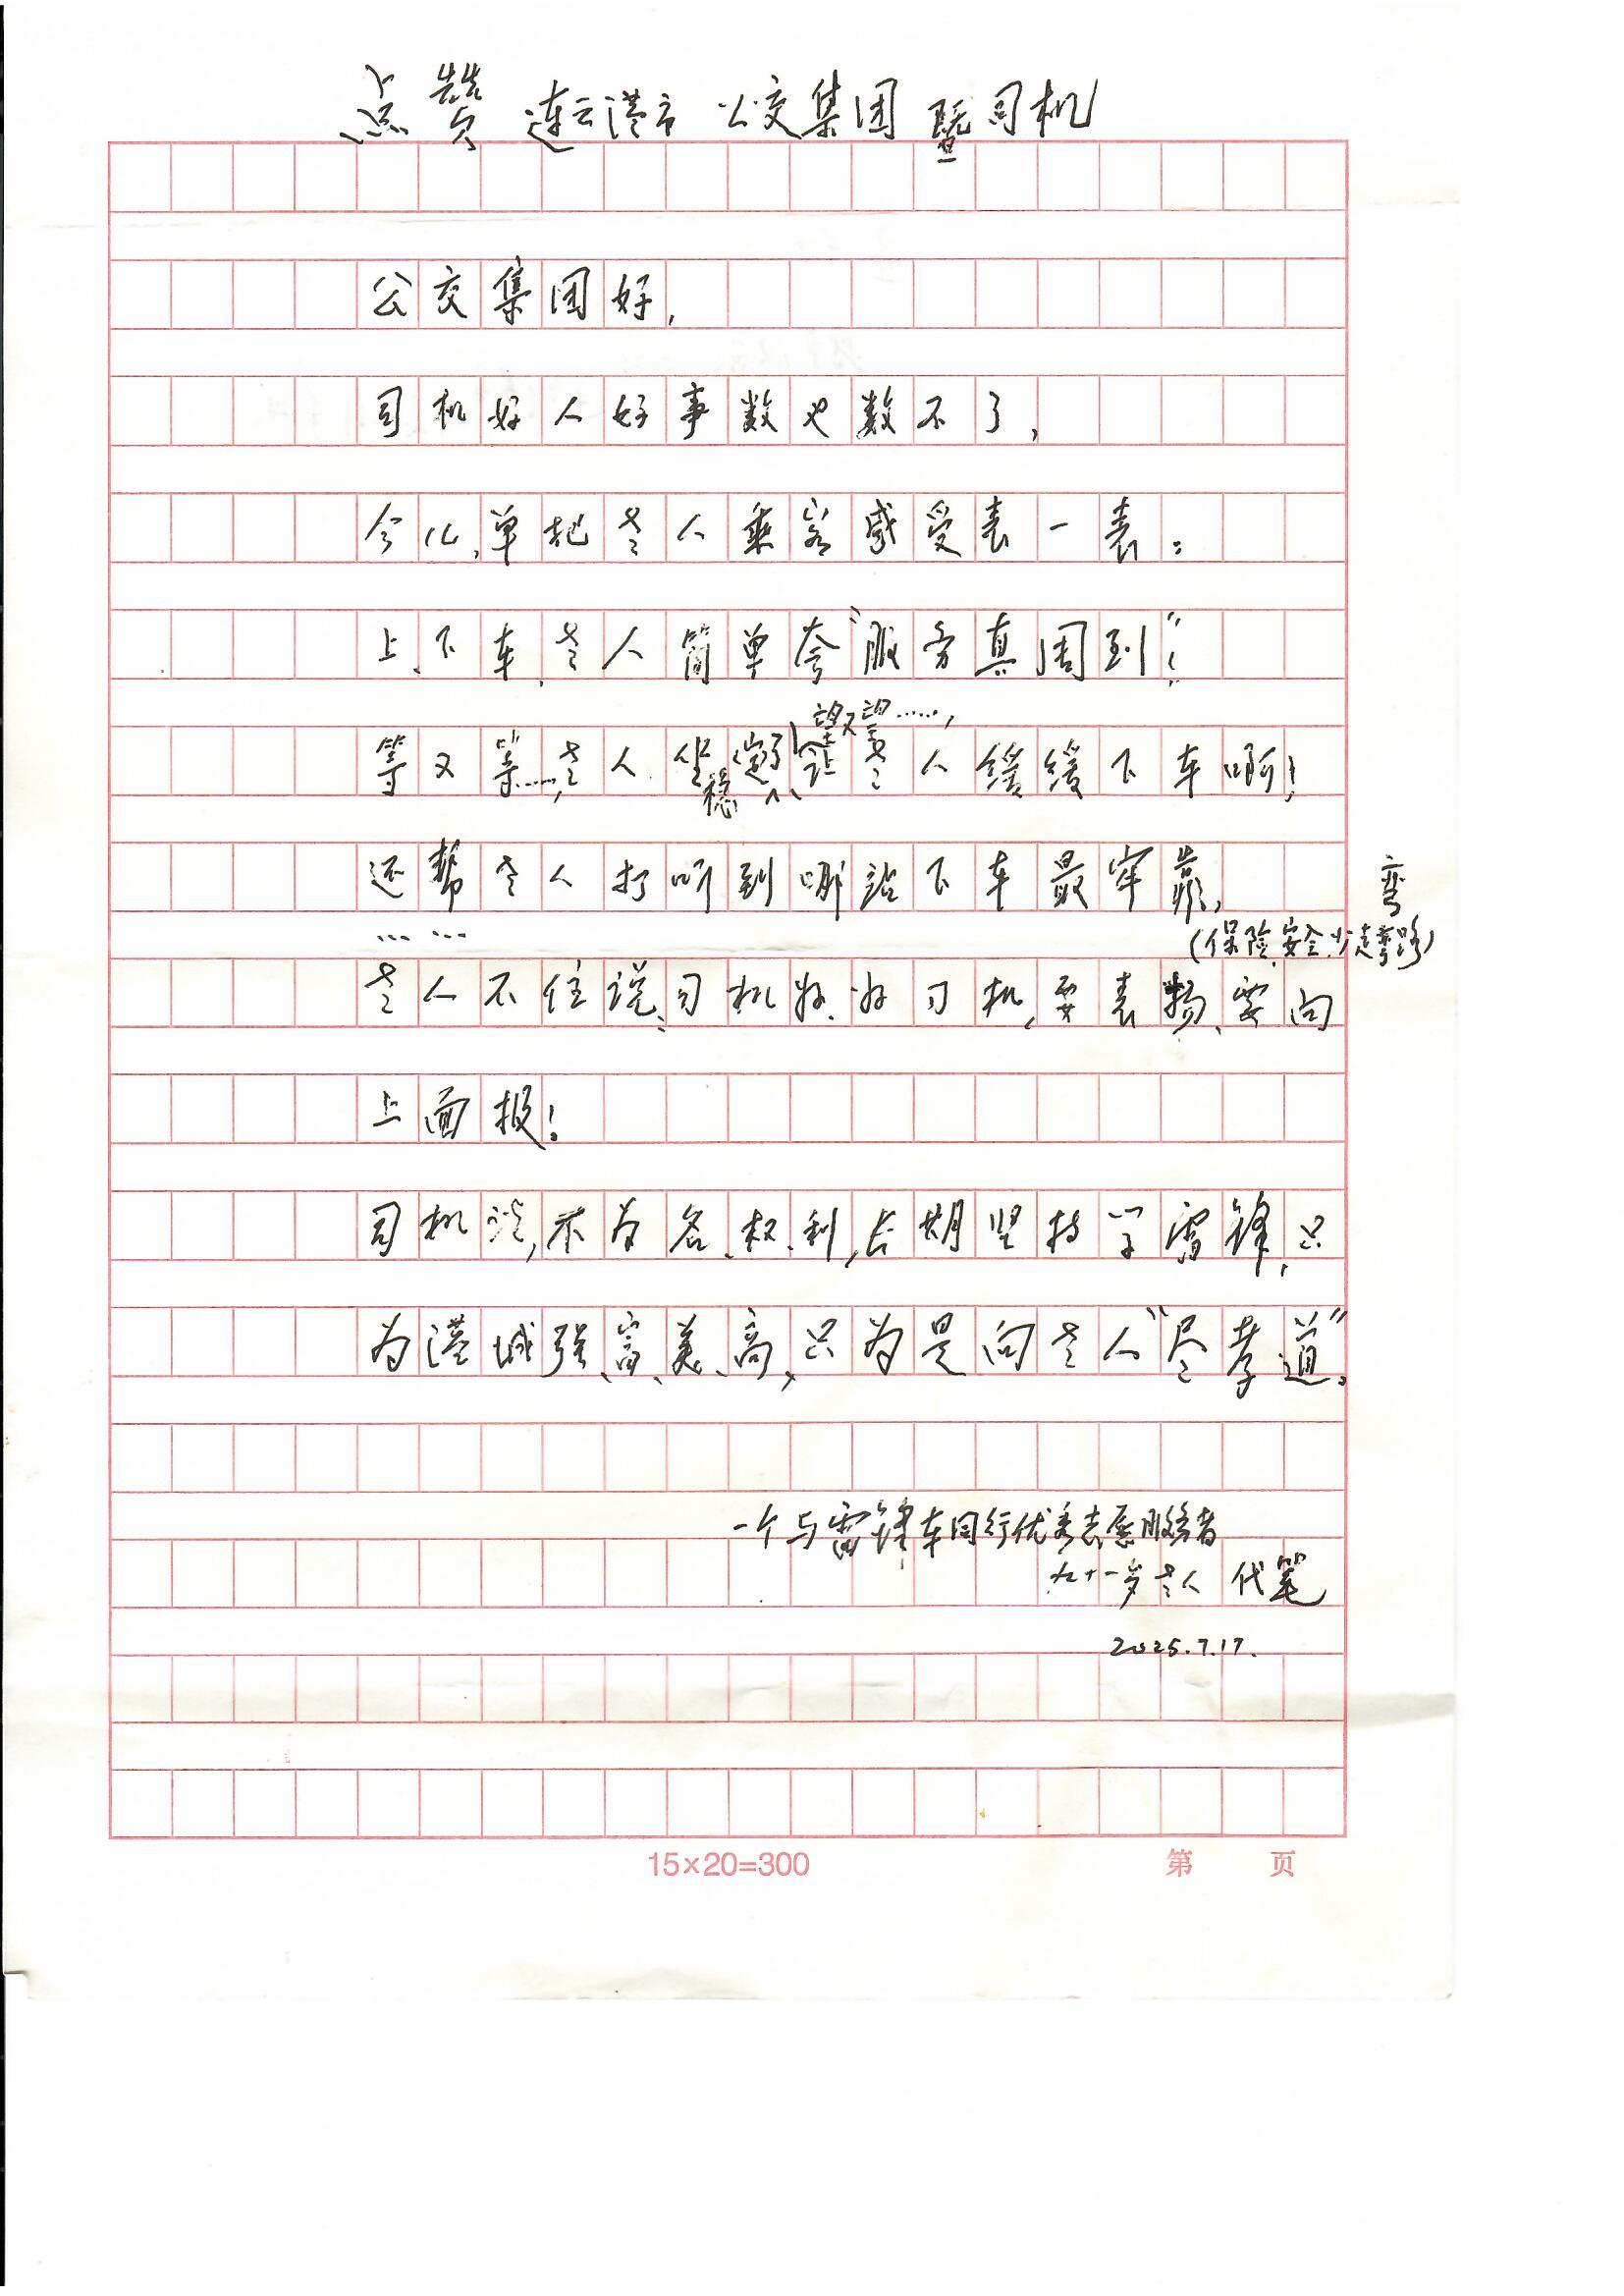 点赞 连云港市公交集团暨司机
公交集团好,
司机好人好事数也数不了,
今儿,单把老人乘客感受表一表:
上、下车,老人简单夸“服务真周到”!
望又望……,
等又等……,老人坐稳了,让老人缓缓下车啊!
还帮老人打听到哪站下车最牢靠,
弯
(保险、安全、少走弯路)
……
老人不住说:司机好、好司机,要表扬、要向
上面报!
司机说,不为名、权、利,长期坚持学雷锋,只
为港城强、富、美、高,只为是向老人“尽孝道”。
一个与雷锋车同行优秀志愿服务者
九十一岁老人 代笔
2025.7.17.
15×20=300 第 页